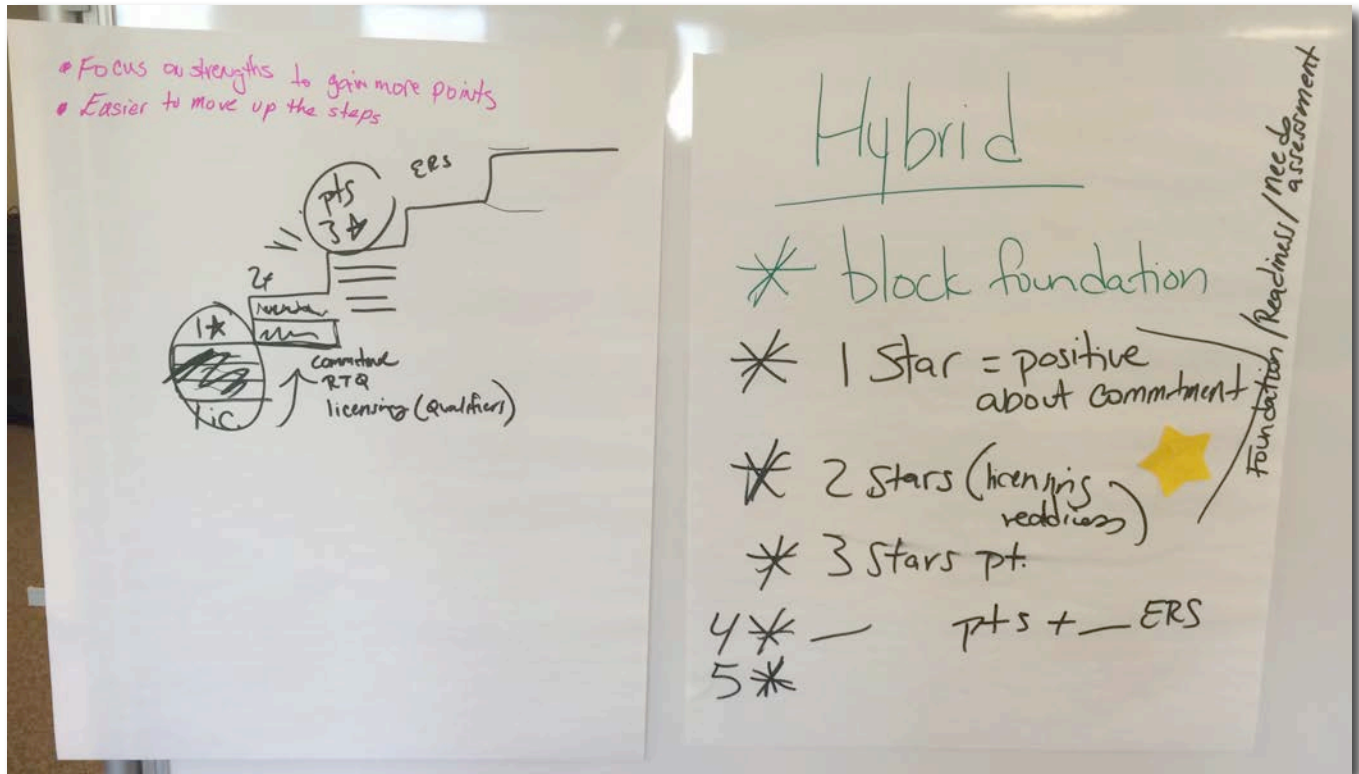 • Focus on strengths to gain more points
• Easier to move up the steps
ERS
pts
3 ☆
2☆
1★
Lic.
RTQ
licensing (Qualifiers)
Hybrid
* block foundation
* 1 Star = positive
about commitment
* 2 Stars (licensing
readiness)
* 3 Stars pt.
4 * — pts + __ ERS
5 *
Foundation / Readiness / need
assessment